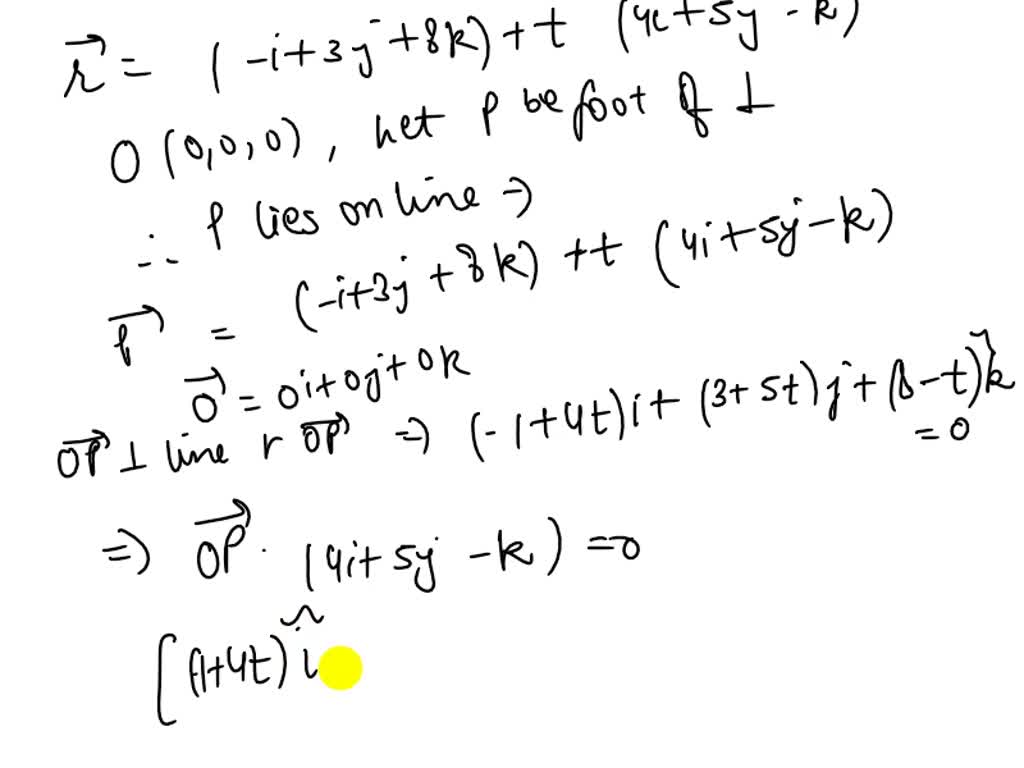 r⃗ = (-i+3j+8k)+t (4i+5j-k)
O (0,0,0), let P be foot of ⊥
∴ P lies on line ⇒
P⃗ = (-i+3j+8k) +t (4i+5j-k)
O⃗ = 0i+0j+0k
OP⃗ ⊥ line r OP⃗ ⇒ (-1+4t)i+(3+5t)j+(8-t)k
=0
⇒ OP⃗ · (4i+5j-k) =0
[(-1+4t)i